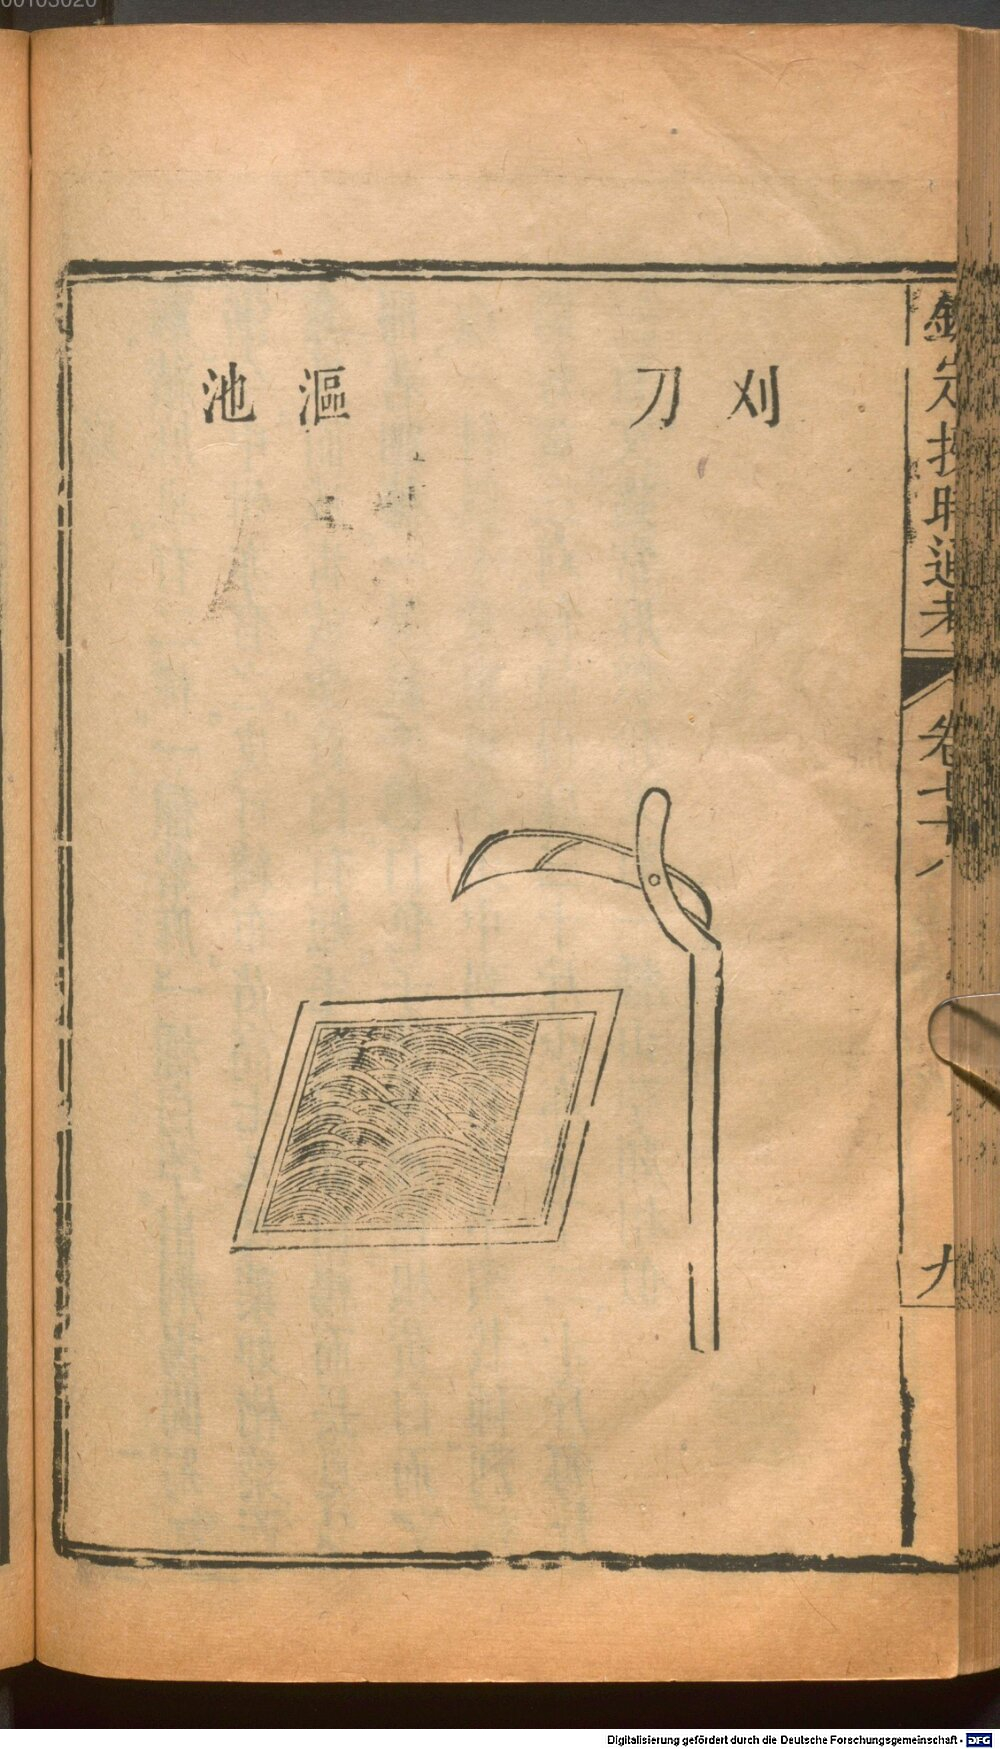 欽定授時通考
卷七十八
九
刈刀
漚池
Digitalisierung gefördert durch die Deutsche Forschungsgemeinschaft - DFG